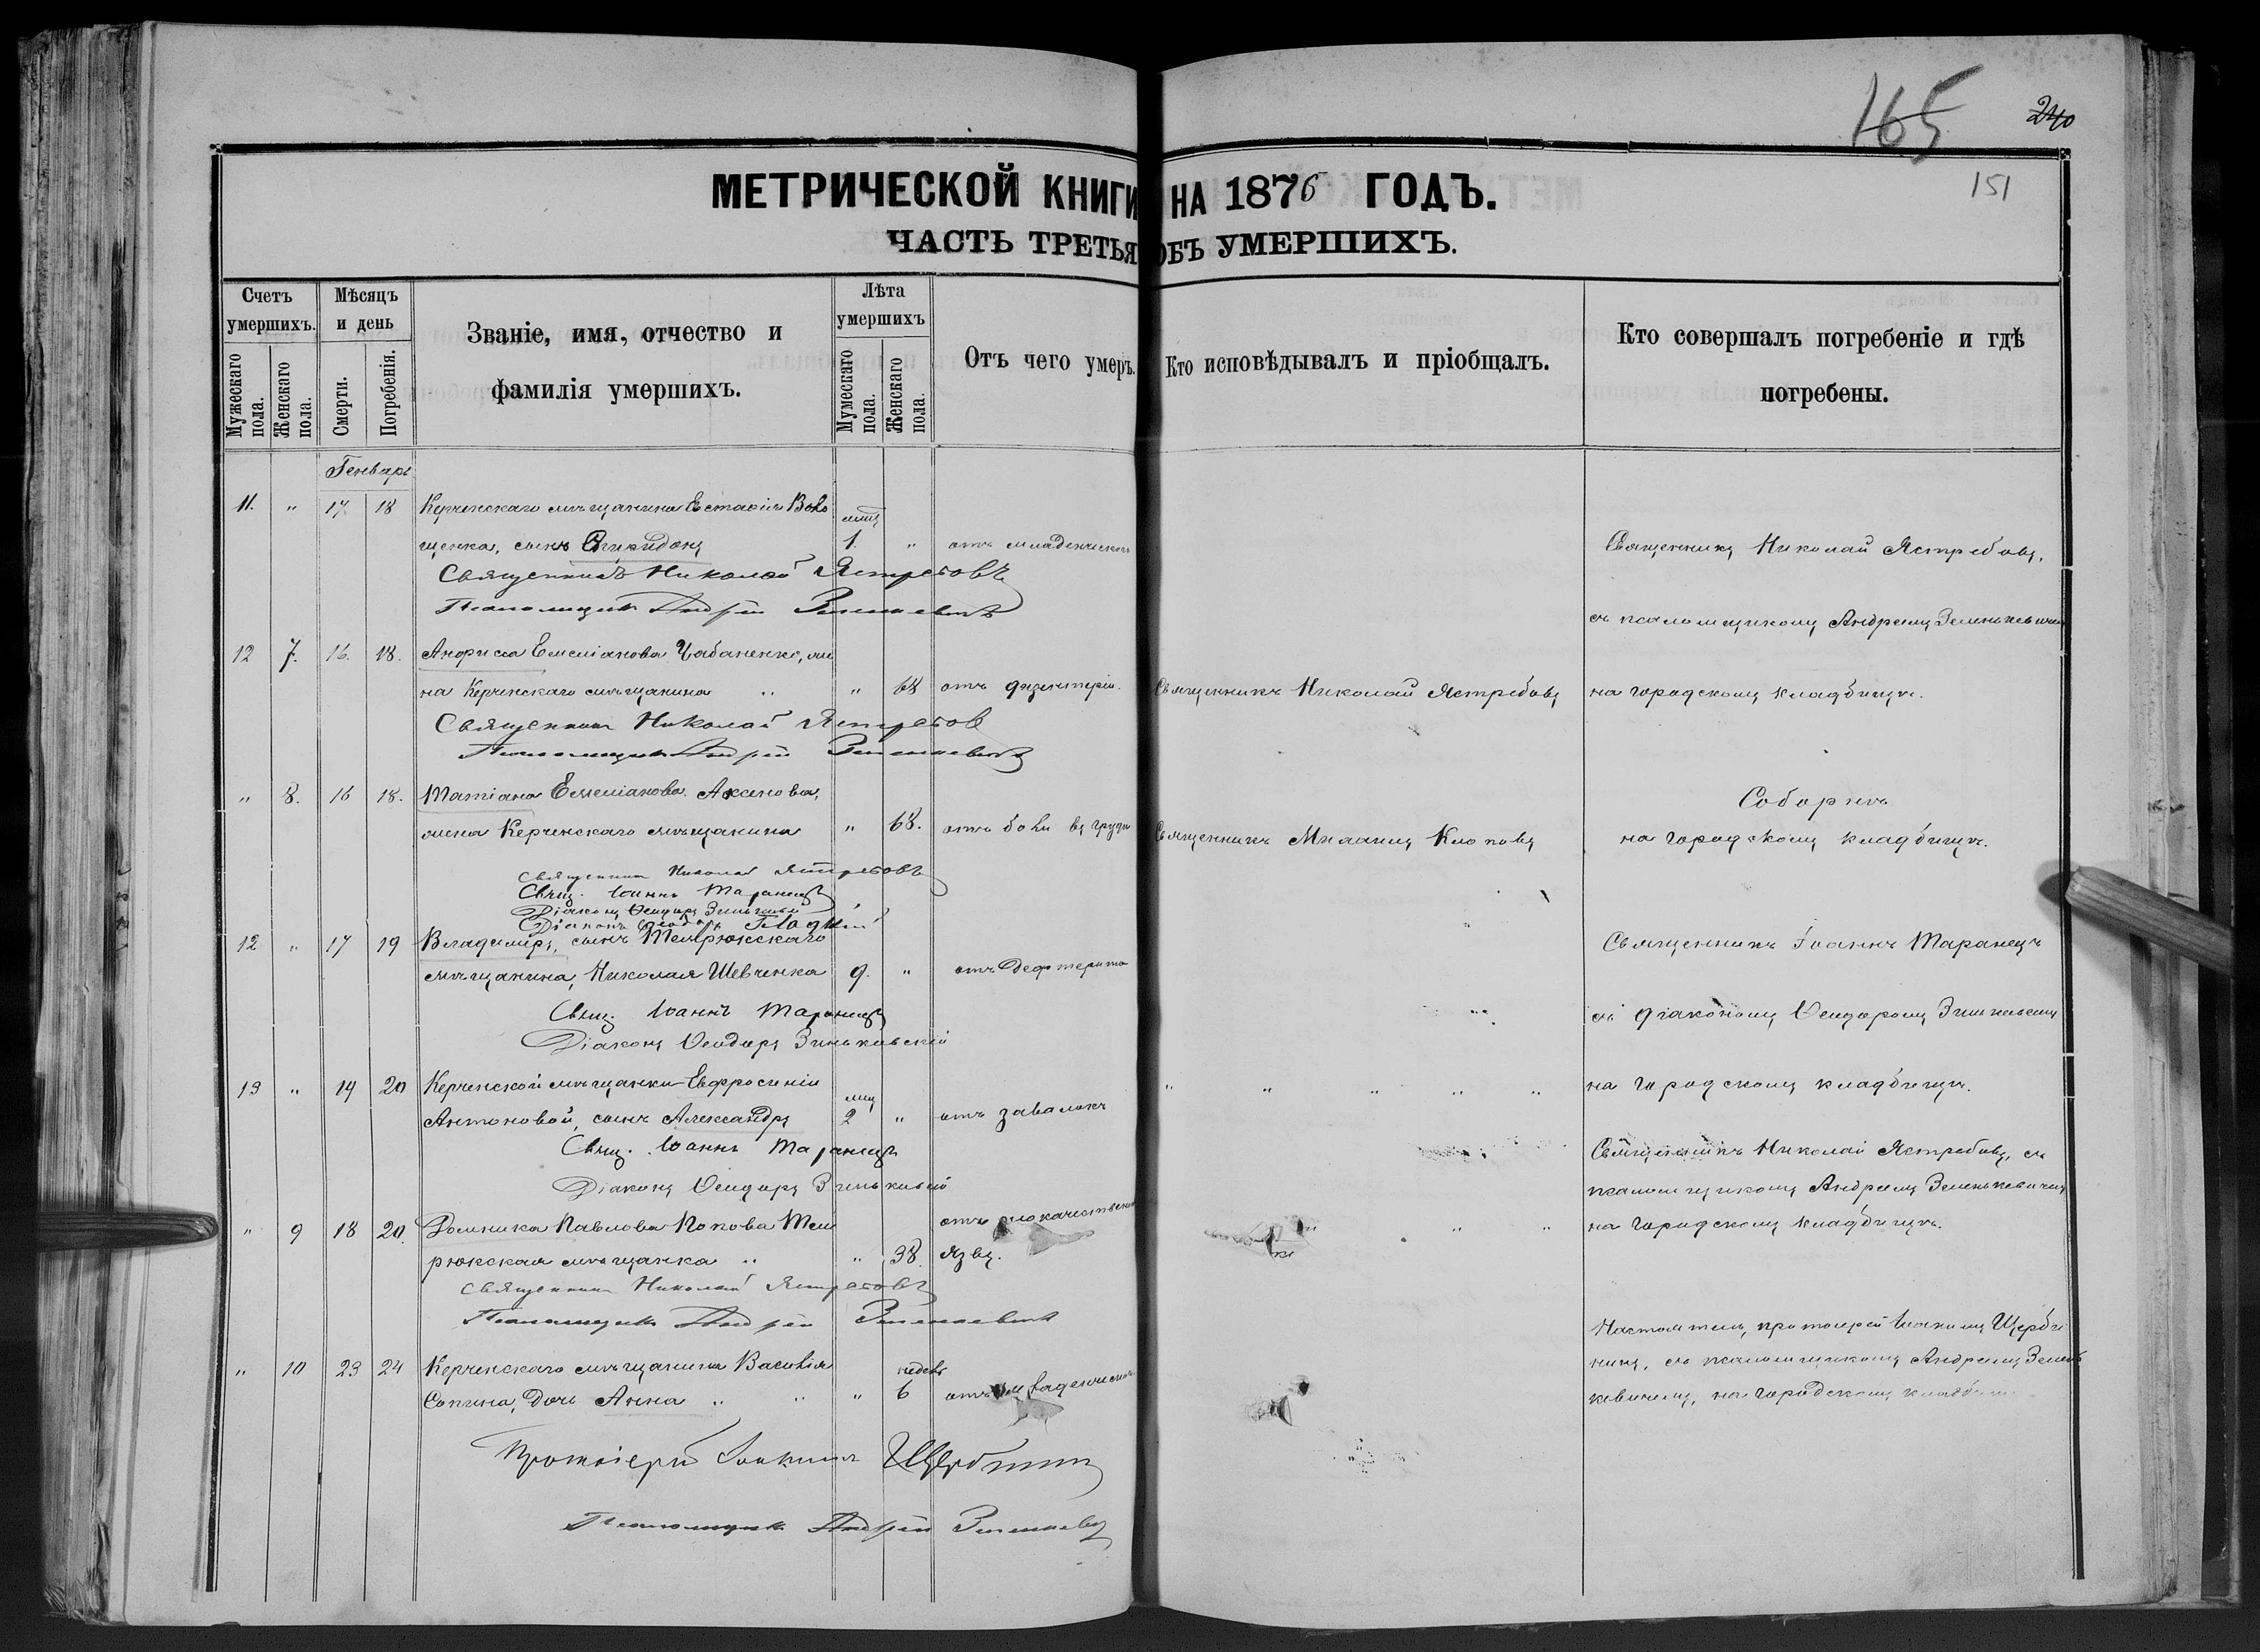 165
240
151
МЕТРИЧЕСКОЙ КНИГИ НА 1876 ГОДЪ.
ЧАСТЬ ТРЕТЬЯ ОБЪ УМЕРШИХЪ.
Счетъ умершихъ.
Мужескаго пола.
Женскаго пола.
Мѣсяцъ и день
Смерти.
Погребенія.
Званіе, имя, отчество и
фамилія умершихъ.
Лѣта умершихъ
Мумескаго пола.
Женскаго пола.
Отъ чего умеръ.
Кто исповѣдывалъ и пріобщалъ.
Кто совершалъ погребеніе и гдѣ
погребены.
Генварь
11. " 17 18 Керченскаго мѣщанина
щенка, сынъ Спиридонъ 1. " отъ младенческой Священникъ Николай Ястребовъ,
Священникъ Николай Ястребовъ
Псаломщикъ Андрей
съ псаломщикомъ Андреемъ
12 7. 16. 18. Емеліанова Цабаненко, же
на Керченскаго мѣщанина " 68 отъ дизентеріи. Священникъ Николай Ястребовъ на городскомъ кладбищѣ.
Священникъ Николай Ястребов
Псаломщикъ Андрей
" 8. 16 18. Татіана Емеліанова Аксенова, Соборнѣ
жена Керченскаго мѣщанина " 68. отъ боли въ груди Священникъ Михаилъ Клоповъ на городскомъ кладбищѣ.
Священникъ Николай Ястребовъ
Свящ. Іоаннъ Таранецъ
Діаконъ Ѳеодоръ
Діаконъ
12 " 17 19 Владиміръ, сынъ Темрюкскаго Священникъ Іоаннъ Таранецъ
мѣщанина, Николая Шевченка 9. " отъ дефтерита
Свящ. Іоаннъ Таранецъ съ діакономъ Ѳеодоромъ
Діаконъ Ѳеодоръ Зиньковскій
13 " 14 20 Керченской мѣщанки Евфросиніи " " " " " на городскомъ кладбищѣ.
мѣц
Антоновой, сынъ Александръ 2 " отъ завалокъ
Свящ. Іоаннъ Таранецъ Священникъ Николай Ястребовъ, съ
Діаконъ Ѳеодоръ псаломщикомъ Андреемъ
" 9 18 20. Домника Павлова Попова Тем отъ злокачественной " " на городскомъ кладбищѣ.
рюкская мѣщанка " " 38. язвы.
Священникъ Николай Ястребовъ
Псаломщикъ Андрей
Настоятель, протоіерей Іоакимъ Щерби
" 10 23 24 Керченскаго мѣщанина Василія недѣль нинъ, съ псаломщикомъ Андреемъ
Сопина, дочь Анна " " " 6 отъ младенческой на городскомъ
Протоіерей Іоакимъ Щербининъ
Псаломщикъ Андрей